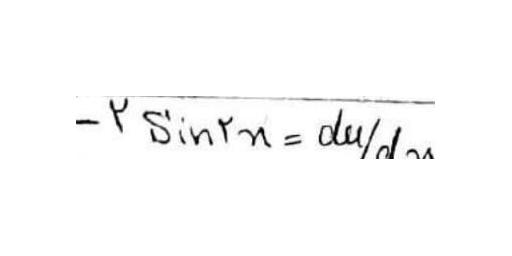 -۲ Sin۲x = du/dx